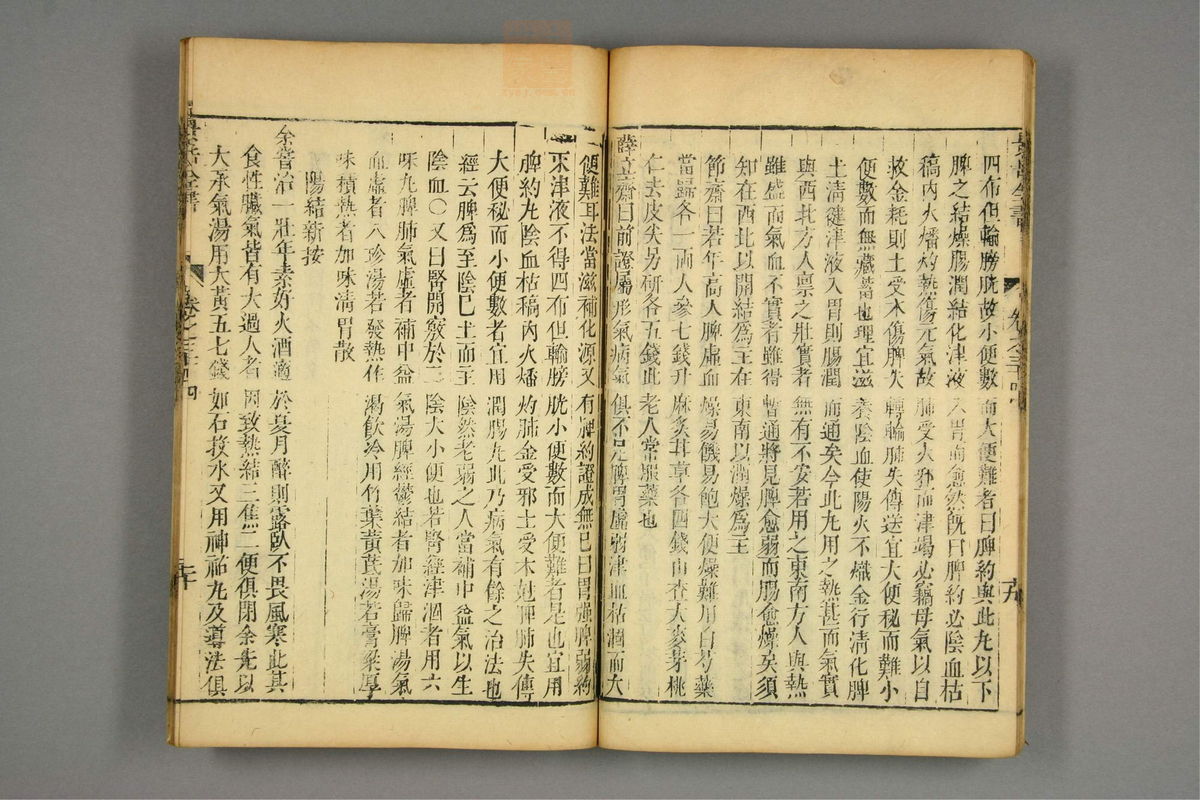 四布但輸膀胱故小便數而大便難者曰脾約與此丸以下
脾之結燥腸潤結化津液入胃而愈然既曰脾約必陰血枯
稿內火燔灼熱傷元氣故肺受火邪而津竭必竊母氣以自
救金耗則土受木傷脾失轉輸肺失傳送宜大便秘而難小
便數而無藏蓄也理宜滋養陰血使陽火不熾金行清化脾
土清健津液入胃則腸潤而通矣今此丸用之熱甚而氣實
與西北方人禀之壯實者無有不安若用之東南方人與熱
雖盛而氣血不實者雖得暫通將見脾愈弱而腸愈燥矣須
知在西北以開結為主在東南以潤燥為主
節齋曰若年高人脾虛血燥易饑易飽大便燥難用白芍藥
當歸各一兩人參七錢升麻炙甘草各四錢山查大麥芽桃
仁去皮尖另研各五錢此老人常服藥也
薛立齋曰前證屬形氣病氣俱不足脾胃虛弱津血枯涸而大
便難耳法當滋補化源又有脾約證成無已曰胃强脾弱約
束津液不得四布但輸膀胱小便數而大便難者是也宜用
脾約丸陰血枯稿內火燔灼肺金受邪土受木尅脾肺失傳
大便秘而小便數者宜用潤腸丸此乃病氣有餘之治法也
經云脾為至陰巳土而主陰然老弱之人當補中益氣以生
陰血○又曰腎開竅於二陰大小便也若腎經津涸者用六
味丸脾肺氣虛者補中益氣湯脾經鬱結者加味歸脾湯氣
血虛者八珍湯若發熱作渴飲冷用竹葉黃芪湯若膏粱厚
味積熱者加味清胃散
陽結新按
余嘗治一壯年素好火酒適於夏月醉則露臥不畏風寒此其
食性臟氣皆有大過人者因致熱結三焦二便俱閉余先以
大承氣湯用大黃五七錢如石投水又用神祐丸及導法俱
卷之三十四
二十